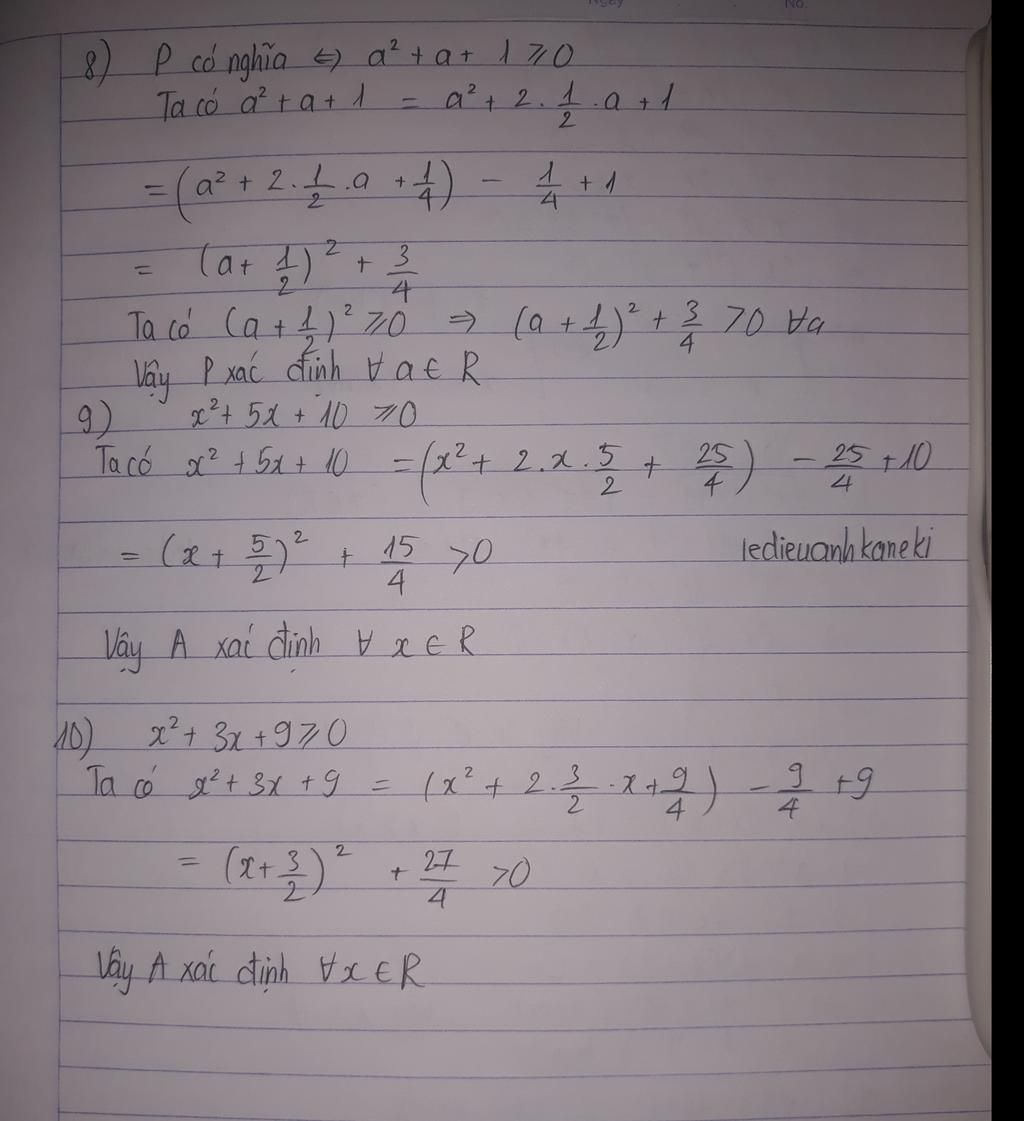 Ngày
No.
8) P có nghĩa ⇔ a² + a + 1 ⩾ 0
Ta có a² + a + 1 = a² + 2 . 1/2 . a + 1
= (a² + 2 . 1/2 . a + 1/4) - 1/4 + 1
= (a + 1/2)² + 3/4
Ta có (a + 1/2)² ⩾ 0 ⇒ (a + 1/2)² + 3/4 > 0 ∀a
Vậy P xác định ∀ a ∈ R
9) x² + 5x + 10 ⩾ 0
Ta có x² + 5x + 10 = (x² + 2 . x . 5/2 + 25/4) - 25/4 + 10
= (x + 5/2)² + 15/4 > 0
ledieuanhkaneki
Vậy A xác định ∀ x ∈ R
10) x² + 3x + 9 ⩾ 0
Ta có x² + 3x + 9 = (x² + 2 . 3/2 . x + 9/4) - 9/4 + 9
= (x + 3/2)² + 27/4 > 0
Vậy A xác định ∀x ∈ R